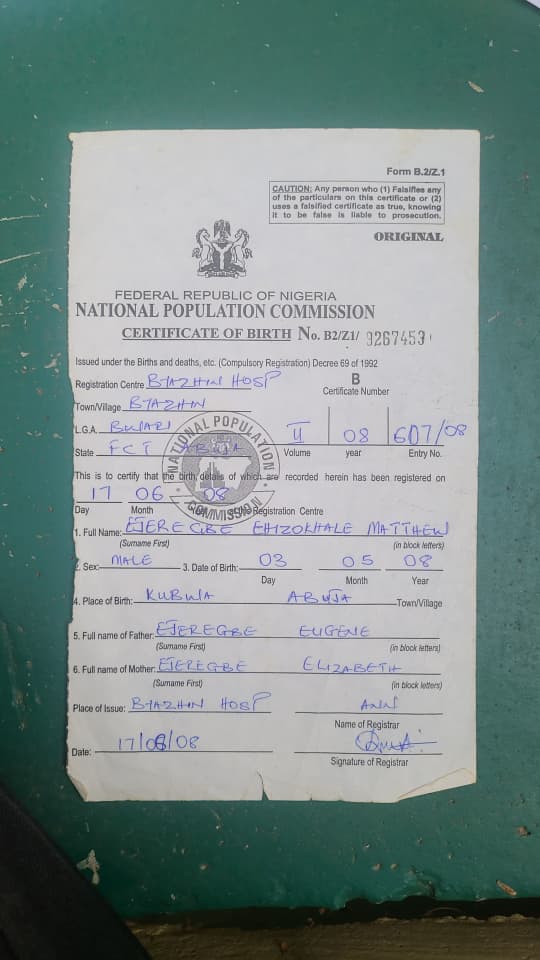 Form B.2/Z.1
CAUTION: Any person who (1) Falsifies any
of the particulars on this certificate or (2)
uses a falsified certificate as true, knowing
it to be false is liable to prosecution.
ORIGINAL
FEDERAL REPUBLIC OF NIGERIA
NATIONAL POPULATION COMMISSION
CERTIFICATE OF BIRTH No. B2/Z1/ 9267453
Issued under the Births and deaths, etc. (Compulsory Registration) Decree 69 of 1992
Registration Centre BYAZHIN HOSP B
Certificate Number
Town/Village BYAZHIN
L.G.A. BWARI II 08 607/08
State FCT ABUJA Volume year Entry No.
NATIONAL POPULATION COMMISSION
This is to certify that the birth, details of which are recorded herein has been registered on
17 06 08
Day Month Registration Centre
1. Full Name: EJEREGBE EHIZOKHALE MATTHEW
(Surname First) (in block letters)
2. Sex: MALE 3. Date of Birth: 03 05 08
Day Month Year
4. Place of Birth: KUBWA ABUJA Town/Village
5. Full name of Father: EJEREGBE EUGENE
(Surname First) (in block letters)
6. Full name of Mother: EJEREGBE ELIZABETH
(Surname First) (in block letters)
Place of Issue: BYAZHIN HOSP ANN
Name of Registrar
Date: 17/06/08
Signature of Registrar